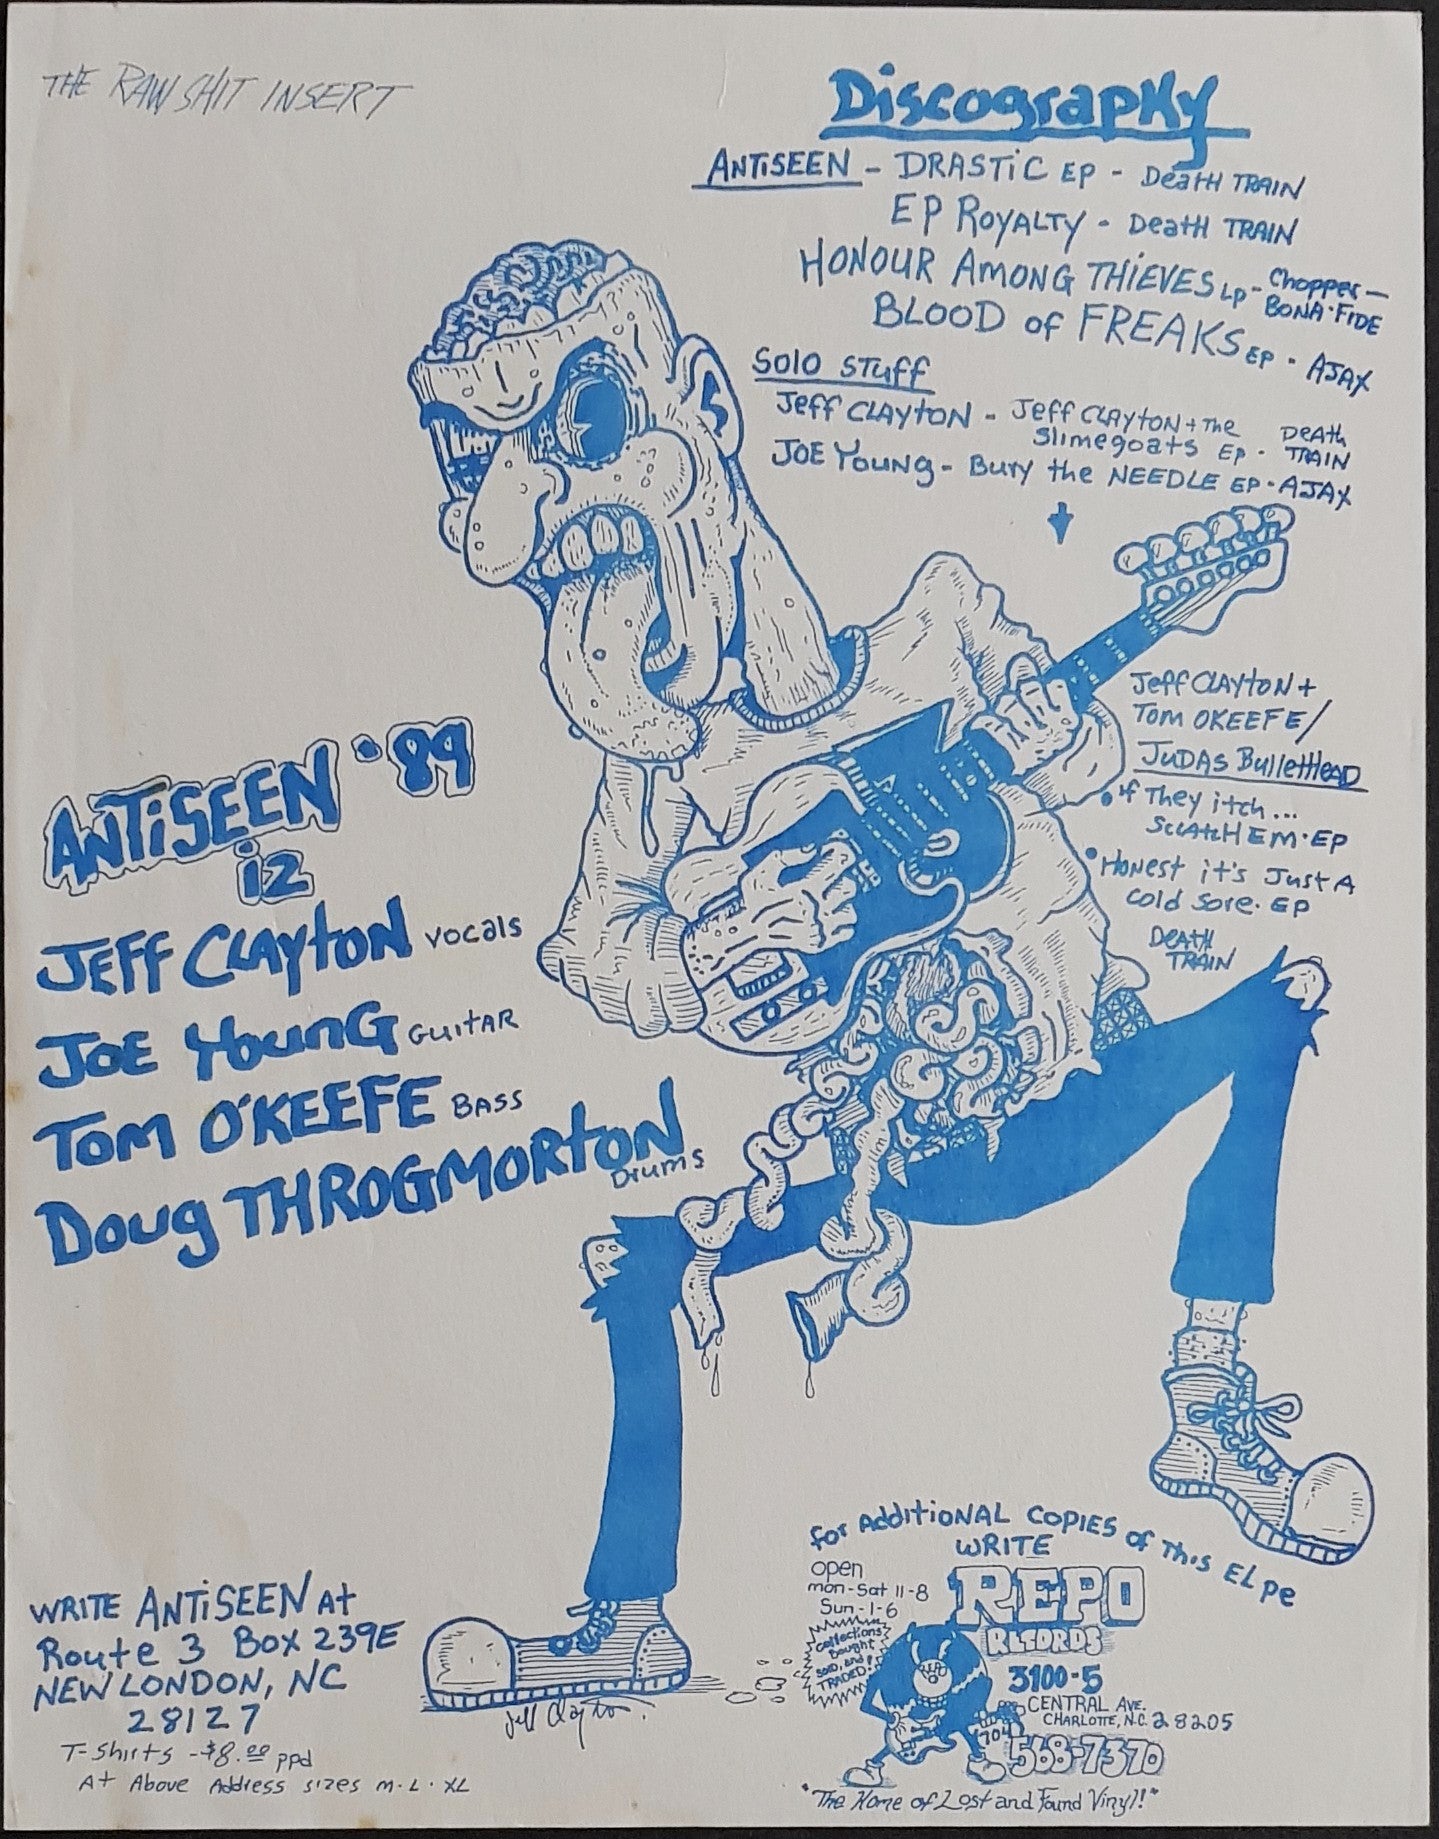 THE RAW SHIT INSERT
Discography
ANTiSEEN - DRASTiC EP - Death TRAIN
EP ROYALTY - Death TRAIN
HONOUR AMONG THiEVES LP - Chopper -
BONA·FIDE
BLOOD of FREAKS EP · AJAX
Solo Stuff
Jeff CLAYTON - Jeff CLAYTON + The
Slimegoats EP · DEATH TRAIN
JOE YOUNG - Bury the NEEDLE EP · AJAX
Jeff CLAYTON +
TOM OKEEFE/
JUDAS BulletHEAD
• if They itch...
SCratcH EM · EP
• Honest it's Just A
Cold Sore · EP
DEATH
TRAIN
ANTiSEEN '89
iz
JEFF CLAYtON vocals
JOE YounG GUitAR
TOM O'KEEFE BASS
Doug THROGMORtON Drums
WRITE ANTiSEEN At
Route 3 Box 239E
NEW LONDON, NC
28127
T-Shirts - $8.00 ppd
At Above Address sizes M · L · XL
Jeff Clayton.
for AdditiONAL COPIES of This EL pe
WRITE
open
mon-sat 11-8
Sun - 1-6
Collections
bought
sold, and
TRADED!
REPO
RECORDS
3100-5
CENTRAL AVE.
CHARLOTTE, N.C. 28205
704
568-7370
"The Home of Lost and Found Vinyl!"